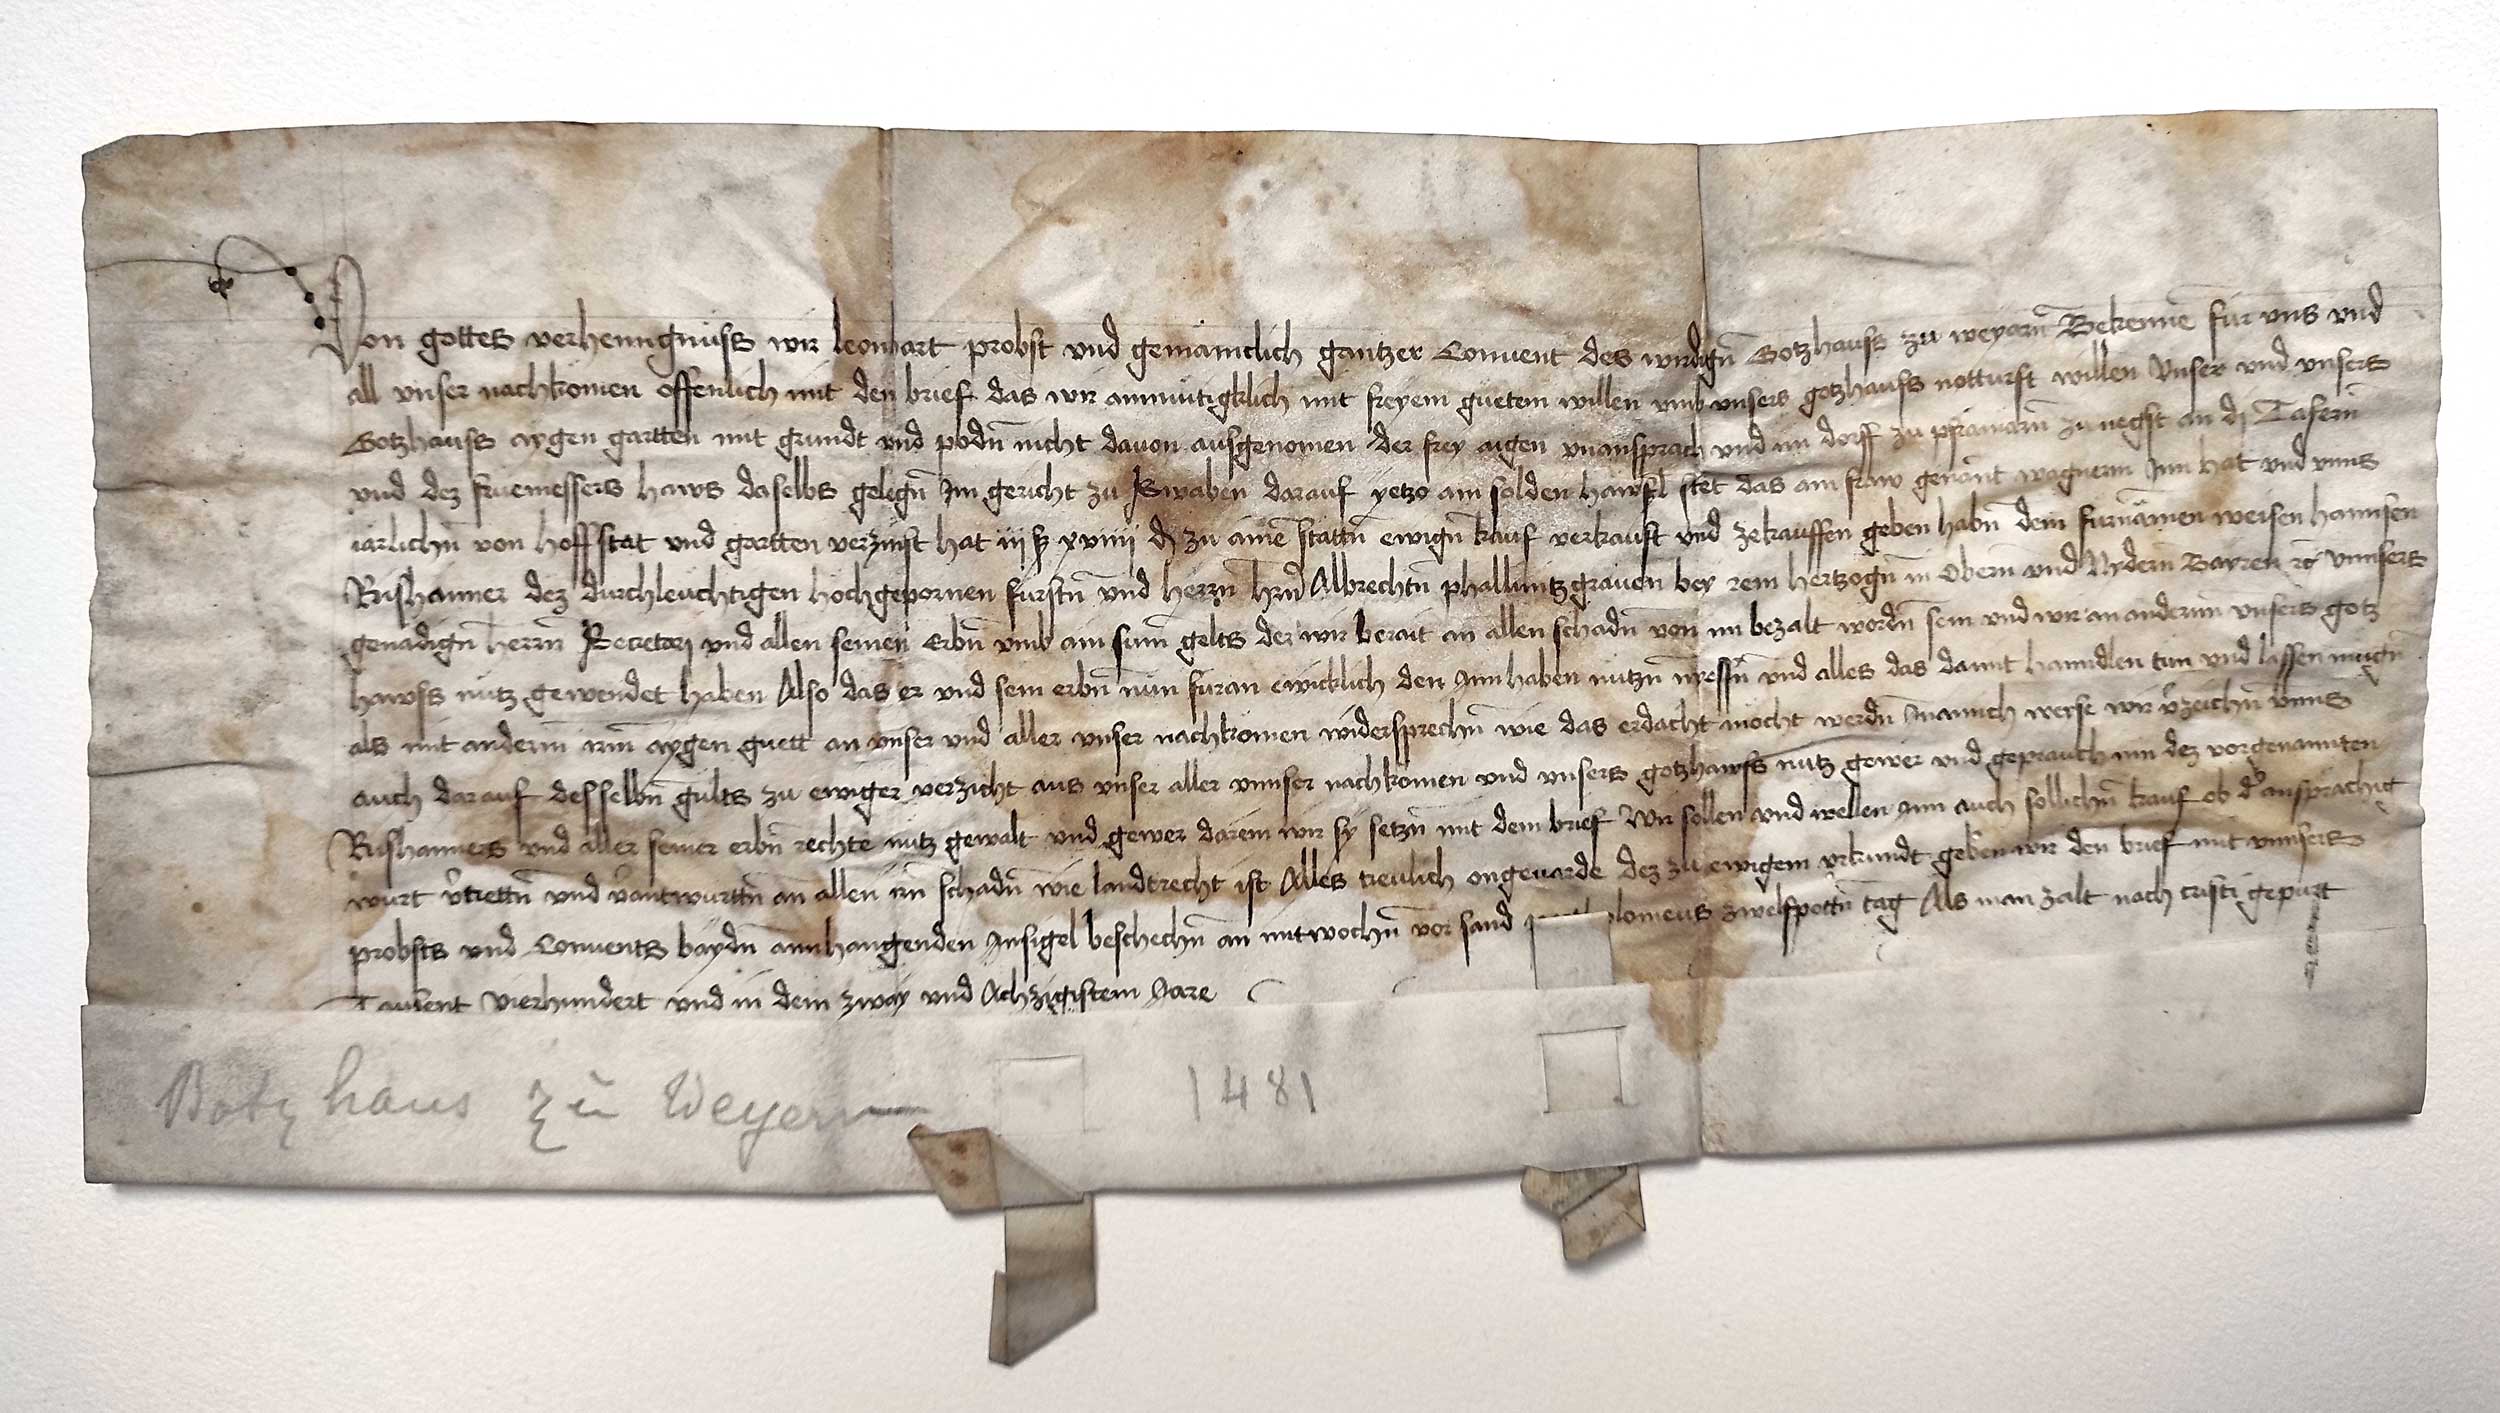 Von gottes verhenngnuss wir leonhart probst vnd gemainclich gantzer Conuent des wirdign̄ Gotzhauss zu weyarn̄ Bekenne für vns vnd
all vnser nachkomen offenlich mit den brief das wir ainmütigklich mit freyem guetem willen vmb vnsers gotzhauss notturft willen Vnser vnd vnsers
Gotzhauss aygen gartten mit grundt vnd podn̄ nicht dauon ausgenomen der frey aigen vnansprach vnd im dorff zu pframarn̄ zunegst an d' Tafern̄
vnd dez fruemessers haws daselbs gelegn̄ Im gericht zu Swaben darauf yetzo ain solden hawsl stet das ain fraw genant wagnerin Inn hat vnd vnns
iarlichn̄ von hoffstat vnd gartten verzinst hat iij ß xviiij d' zu aine stattn̄ ewign̄ kauf verkauft vnd zekauffen geben habn̄ dem furnämen weisen hannsen
Rishamer dez durchleuchtigen hochgepornen fürstn̄ vnd herrn̄ hrn̄ Albrechtn̄ phallnntzgrauen bey rein hertzogn̄ in Obern̄ vnd Nydern̄ Bayren rc̄ Vnnsers
genadign̄ herrn̄ Secretarj vnd allen seinen Erbn̄ vmb ain sum̄ gelts der wir berait an allen schadn̄ von im bezalt wordn̄ sein vnd wir an anderm̄ vnsers gotz
hawss nutz gewendet haben Also das er vnd sein erbn̄ nun füran ewicklich den Innhaben nutzn̄ nyessn̄ vnd alles das damit hanndlen tun vnd lassen mügn̄
als mit anderm irm̄ aygen guett an vnser vnd aller vnser nachkomen widersprechn̄ wie das erdacht möcht werdn̄ Inainich weyse wir v̄zeichn̄ vnns
auch darauf desselbn̄ gults zu ewiger verzicht aus vnser aller vnnser nachkomen vnd vnsers gotzhawss nutz gewer vnd geprauch inn dez vorgenannten
Rishamers vnd aller seiner erbn̄ rechte nutz gewalt vnd gewer darein wir sy setzn̄ mit dem brief Wir sollen vnd wellen Inn auch sollichn̄ kauf ob d' ansprachig
wurt v̄trettn̄ vnd v̄antwurttn̄ an allen irn̄ schadn̄ wie landtrecht ist Alles treulich ongeuarde dez zu ewigem vrkundt geben wir den brief mit vnnsers
probsts vnd Conuents baydn̄ annhangenden Insigel beschechn̄ an mitwochn̄ vor sand zwelfpottn̄ tag Als man zalt nach cristi gepurt
Tausent Vierhundert vnd in dem zway vnd Achzigistem Iare
Botz haus zu Weyern 1481